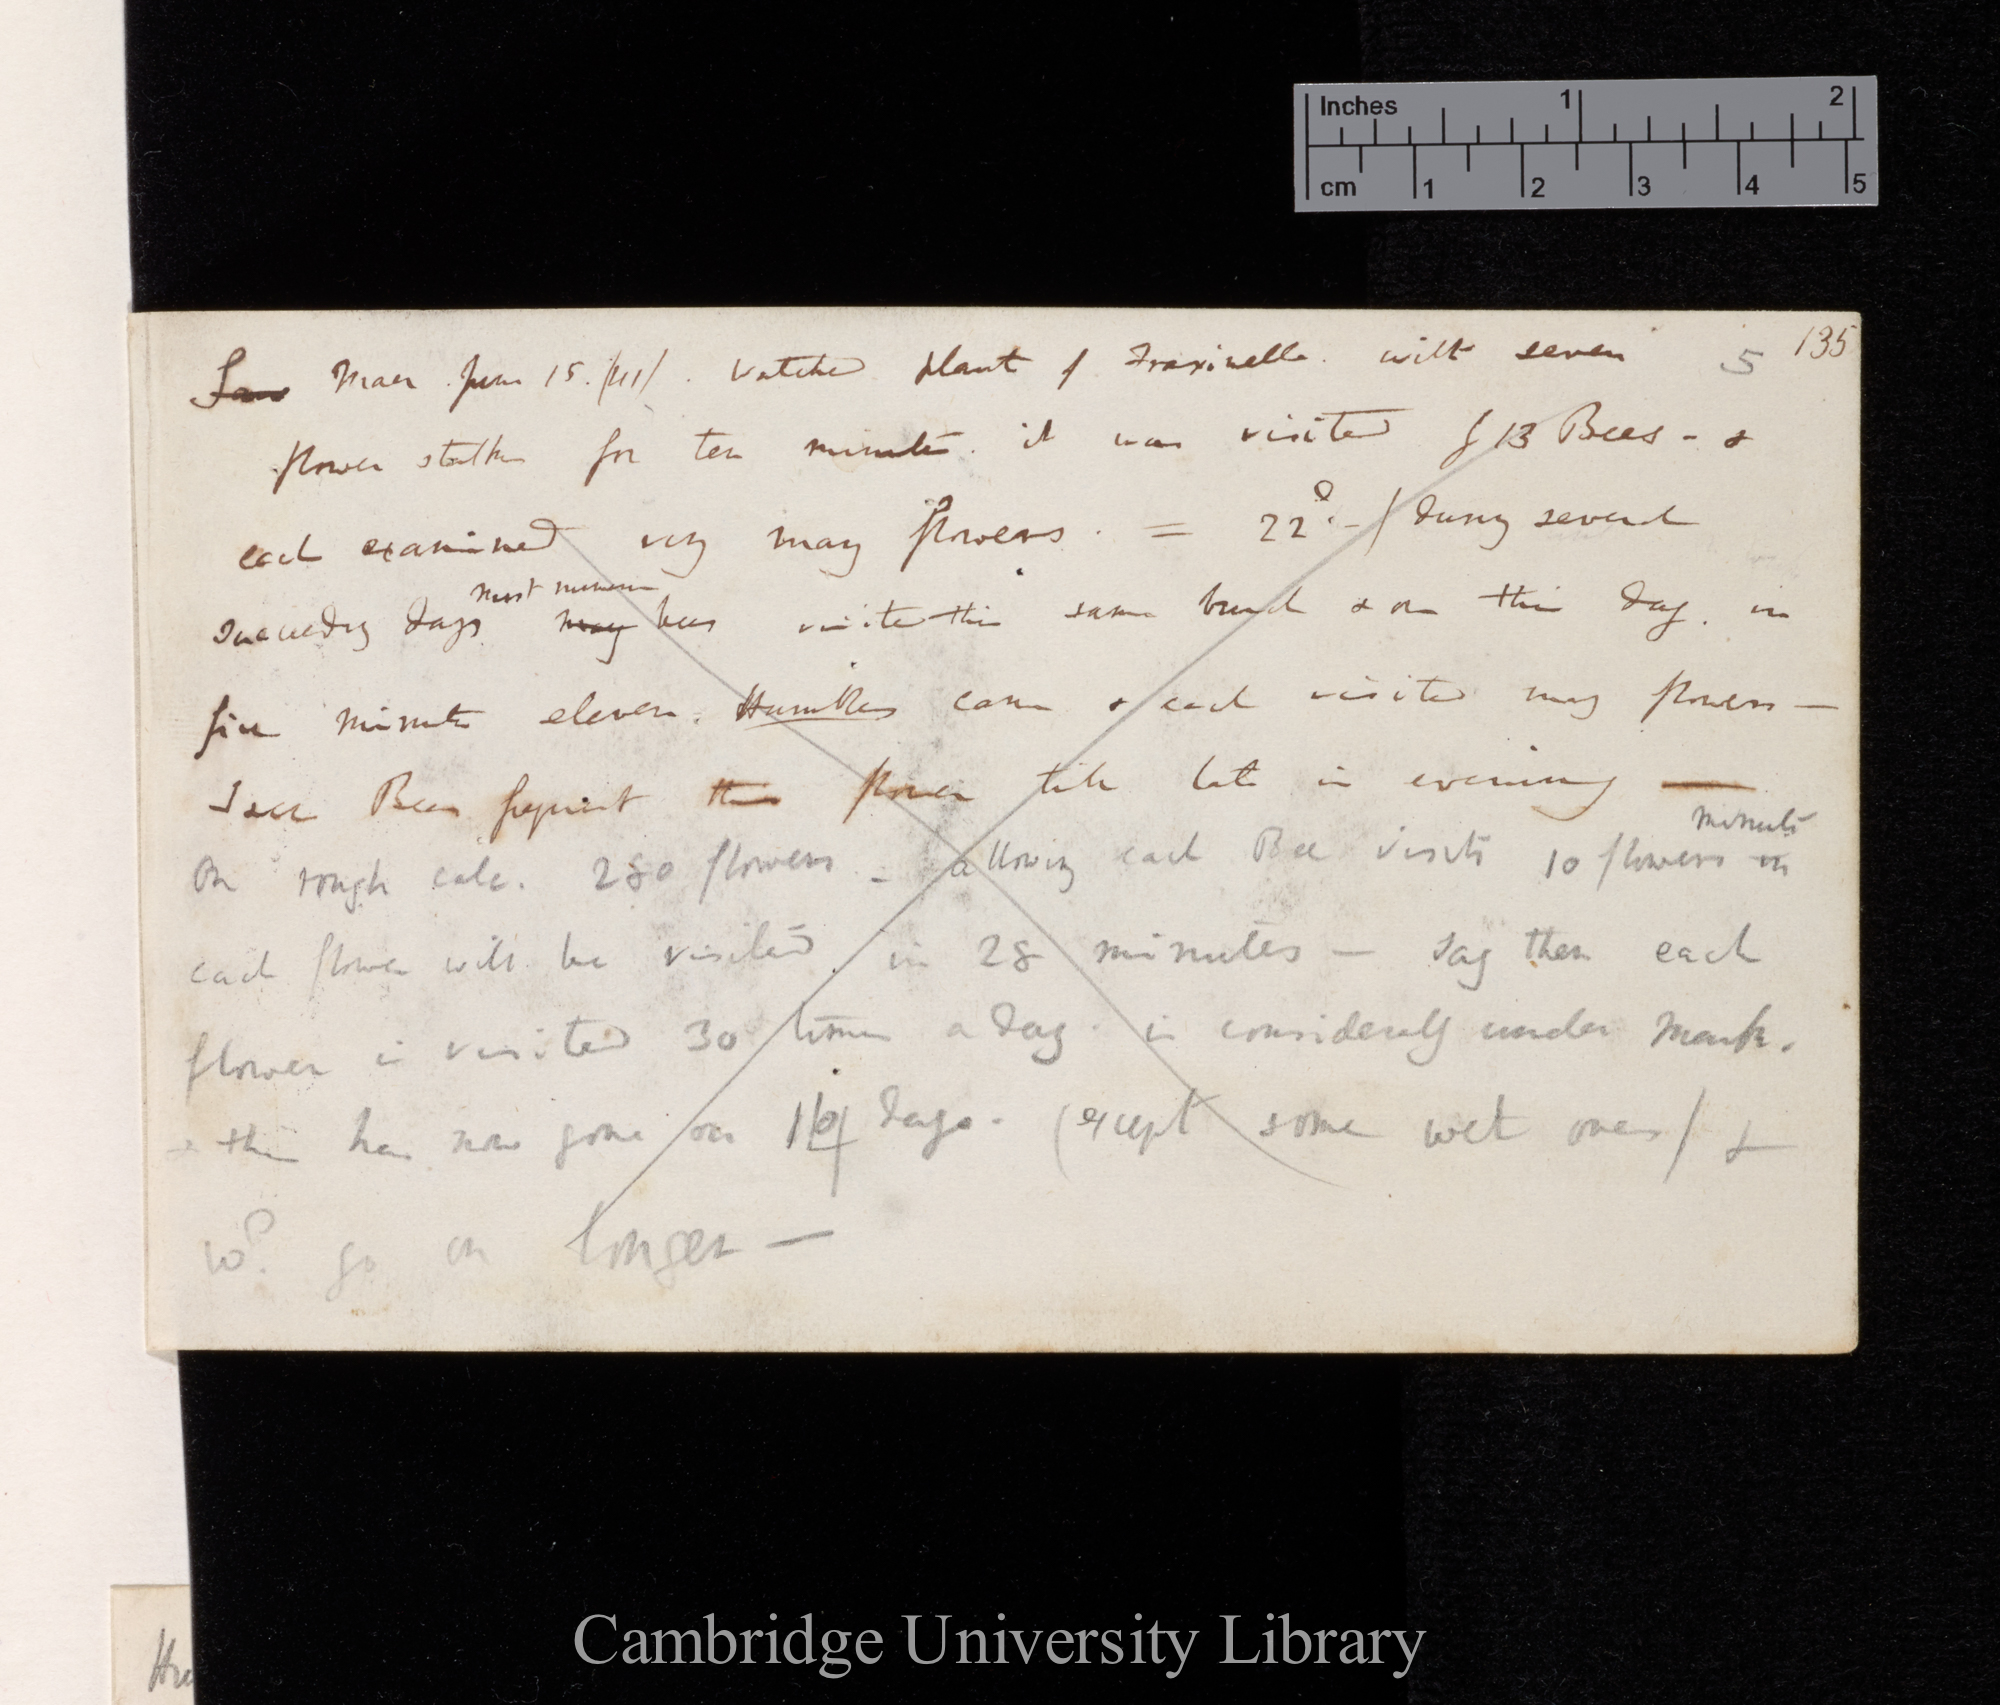 Inches 1 2
cm 1 2 3 4 5
135
5
Saw Maer. June 15. /41/. Watched plant of Fraxinella. with seven
flower stalks for ten minutes. it was visited by 13 Bees — &
each examined very many flowers. = 22d. — / During several
succeeding days many bees visited this same bunch & on this day, in
most numerous
five minutes eleven. Humbles came & each visited many flowers —
I see Bees frequent this flower till late in evening —
On rough calc. 280 flowers — allowing each Bee visits 10 flowers in
minute
each flower will be visited in 28 minutes — say then each
flower is visited 30 times a day. is considerably under mark.
& this has now gone on days. (except some wet ones) &
wd. go on longer —
Hu
Cambridge University Library